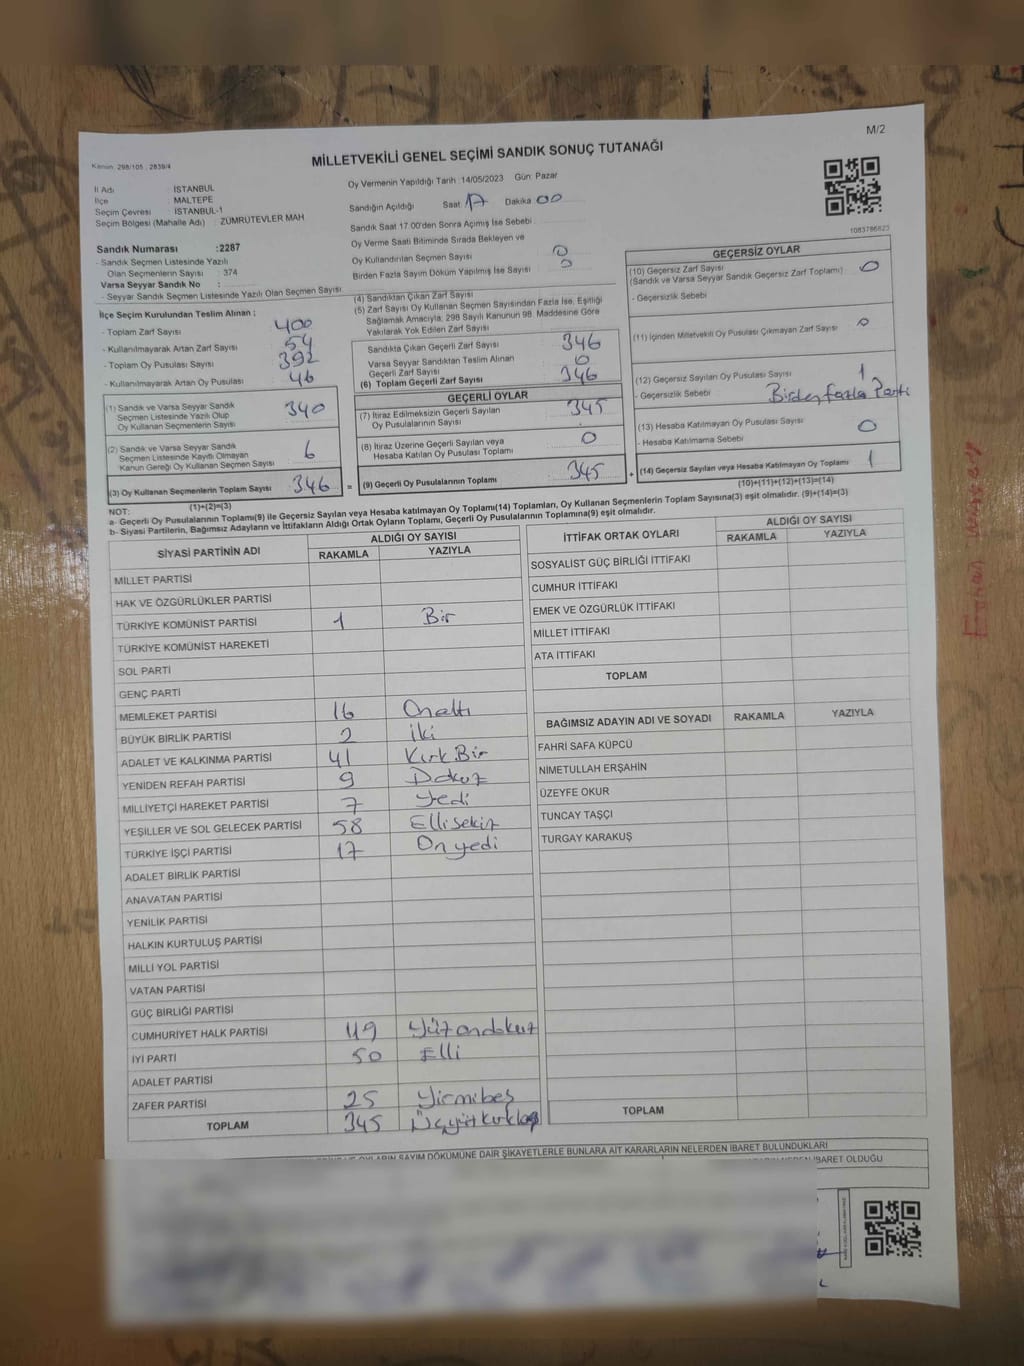 M/2
Kanun: 298/105 : 2839/4
MİLLETVEKİLİ GENEL SEÇİMİ SANDIK SONUÇ TUTANAĞI
İl Adı : İSTANBUL
İlçe : MALTEPE
Seçim Çevresi : İSTANBUL-1
Seçim Bölgesi (Mahalle Adı) : ZÜMRÜTEVLER MAH
Sandık Numarası :2287
- Sandık Seçmen Listesinde Yazılı
Olan Seçmenlerin Sayısı : 374
Varsa Seyyar Sandık No :
- Seyyar Sandık Seçmen Listesinde Yazılı Olan Seçmen Sayısı:
Oy Vermenin Yapıldığı Tarih :14/05/2023 Gün: Pazar
Sandığın Açıldığı Saat 17 Dakika 00
Sandık Saat 17.00'den Sonra Açımış İse Sebebi
Oy Verme Saati Bitiminde Sırada Bekleyen ve
Oy Kullandırılan Seçmen Sayısı 0
Birden Fazla Sayım Döküm Yapılmış İse Sayısı 0
1083786823
İlçe Seçim Kurulundan Teslim Alınan :
- Toplam Zarf Sayısı 400
- Kullanılmayarak Artan Zarf Sayısı 54
- Toplam Oy Pusulası Sayısı 392
- Kullanılmayarak Artan Oy Pusulası 46
(1) Sandık ve Varsa Seyyar Sandık
Seçmen Listesinde Yazılı Olup
Oy Kullanan Seçmenlerin Sayısı 340
(2) Sandık ve Varsa Seyyar Sandık
Seçmen Listesinde Kayıtlı Olmayan
Kanun Gereği Oy Kullanan Seçmen Sayısı 6
(3) Oy Kullanan Seçmenlerin Toplam Sayısı 346 =
(1)+(2)=(3)
(4) Sandıktan Çıkan Zarf Sayısı
(5) Zarf Sayısı Oy Kullanan Seçmen Sayısından Fazla İse, Eşitliği
Sağlamak Amacıyla, 298 Sayılı Kanunun 98. Maddesine Göre
Yakılarak Yok Edilen Zarf Sayısı
Sandıkta Çıkan Geçerli Zarf Sayısı 346
Varsa Seyyar Sandıktan Teslim Alınan
Geçerli Zarf Sayısı 0
(6) Toplam Geçerli Zarf Sayısı 346
GEÇERLİ OYLAR
(7) İtiraz Edilmeksizin Geçerli Sayılan
Oy Pusulalarının Sayısı 345
(8) İtiraz Üzerine Geçerli Sayılan veya
Hesaba Katılan Oy Pusulası Toplamı 0
(9) Geçerli Oy Pusulalarının Toplamı 345 +
GEÇERSİZ OYLAR
(10) Geçersiz Zarf Sayısı
(Sandık ve Varsa Seyyar Sandık Geçersiz Zarf Toplamı) 0
- Geçersizlik Sebebi
(11) İçinden Milletvekili Oy Pusulası Çıkmayan Zarf Sayısı 0
(12) Geçersiz Sayılan Oy Pusulası Sayısı 1
- Geçersizlik Sebebi Birden fazla Parti
(13) Hesaba Katılmayan Oy Pusulası Sayısı 0
- Hesaba Katılmama Sebebi
(14) Geçersiz Sayılan veya Hesaba Katılmayan Oy Toplamı 1
(10)+(11)+(12)+(13)=(14)
NOT:
a- Geçerli Oy Pusulalarının Toplamı(9) ile Geçersiz Sayılan veya Hesaba katılmayan Oy Toplamı(14) Toplamları, Oy Kullanan Seçmenlerin Toplam Sayısına(3) eşit olmalıdır. (9)+(14)=(3)
b- Siyasi Partilerin, Bağımsız Adayların ve İttifakların Aldığı Ortak Oyların Toplamı, Geçerli Oy Pusulalarının Toplamına(9) eşit olmalıdır.
SİYASİ PARTİNİN ADI ALDIĞI OY SAYISI
RAKAMLA YAZIYLA
MİLLET PARTİSİ
HAK VE ÖZGÜRLÜKLER PARTİSİ
TÜRKİYE KOMÜNİST PARTİSİ 1 Bir
TÜRKİYE KOMÜNİST HAREKETİ
SOL PARTİ
GENÇ PARTİ
MEMLEKET PARTİSİ 16 Onaltı
BÜYÜK BİRLİK PARTİSİ 2 iki
ADALET VE KALKINMA PARTİSİ 41 Kırk Bir
YENİDEN REFAH PARTİSİ 9 Dokuz
MİLLİYETÇİ HAREKET PARTİSİ 7 yedi
YEŞİLLER VE SOL GELECEK PARTİSİ 58 Ellisekiz
TÜRKİYE İŞÇİ PARTİSİ 17 On yedi
ADALET BİRLİK PARTİSİ
ANAVATAN PARTİSİ
YENİLİK PARTİSİ
HALKIN KURTULUŞ PARTİSİ
MİLLİ YOL PARTİSİ
VATAN PARTİSİ
GÜÇ BİRLİĞİ PARTİSİ
CUMHURİYET HALK PARTİSİ 119 Yüzondokuz
İYİ PARTİ 50 Elli
ADALET PARTİSİ
ZAFER PARTİSİ 25 Yirmibeş
TOPLAM 345 Üçyüzkırkbeş
İTTİFAK ORTAK OYLARI ALDIĞI OY SAYISI
RAKAMLA YAZIYLA
SOSYALİST GÜÇ BİRLİĞİ İTTİFAKI
CUMHUR İTTİFAKI
EMEK VE ÖZGÜRLÜK İTTİFAKI
MİLLET İTTİFAKI
ATA İTTİFAKI
TOPLAM
BAĞIMSIZ ADAYIN ADI VE SOYADI RAKAMLA YAZIYLA
FAHRİ SAFA KÜPCÜ
NİMETULLAH ERŞAHİN
ÜZEYFE OKUR
TUNCAY TAŞÇI
TURGAY KARAKUŞ
TOPLAM
OYLARIN SAYIM DÖKÜMÜNE DAİR ŞİKAYETLERLE BUNLARA AİT KARARLARIN NELERDEN İBARET BULUNDUKLARI
İBARET OLDUĞU